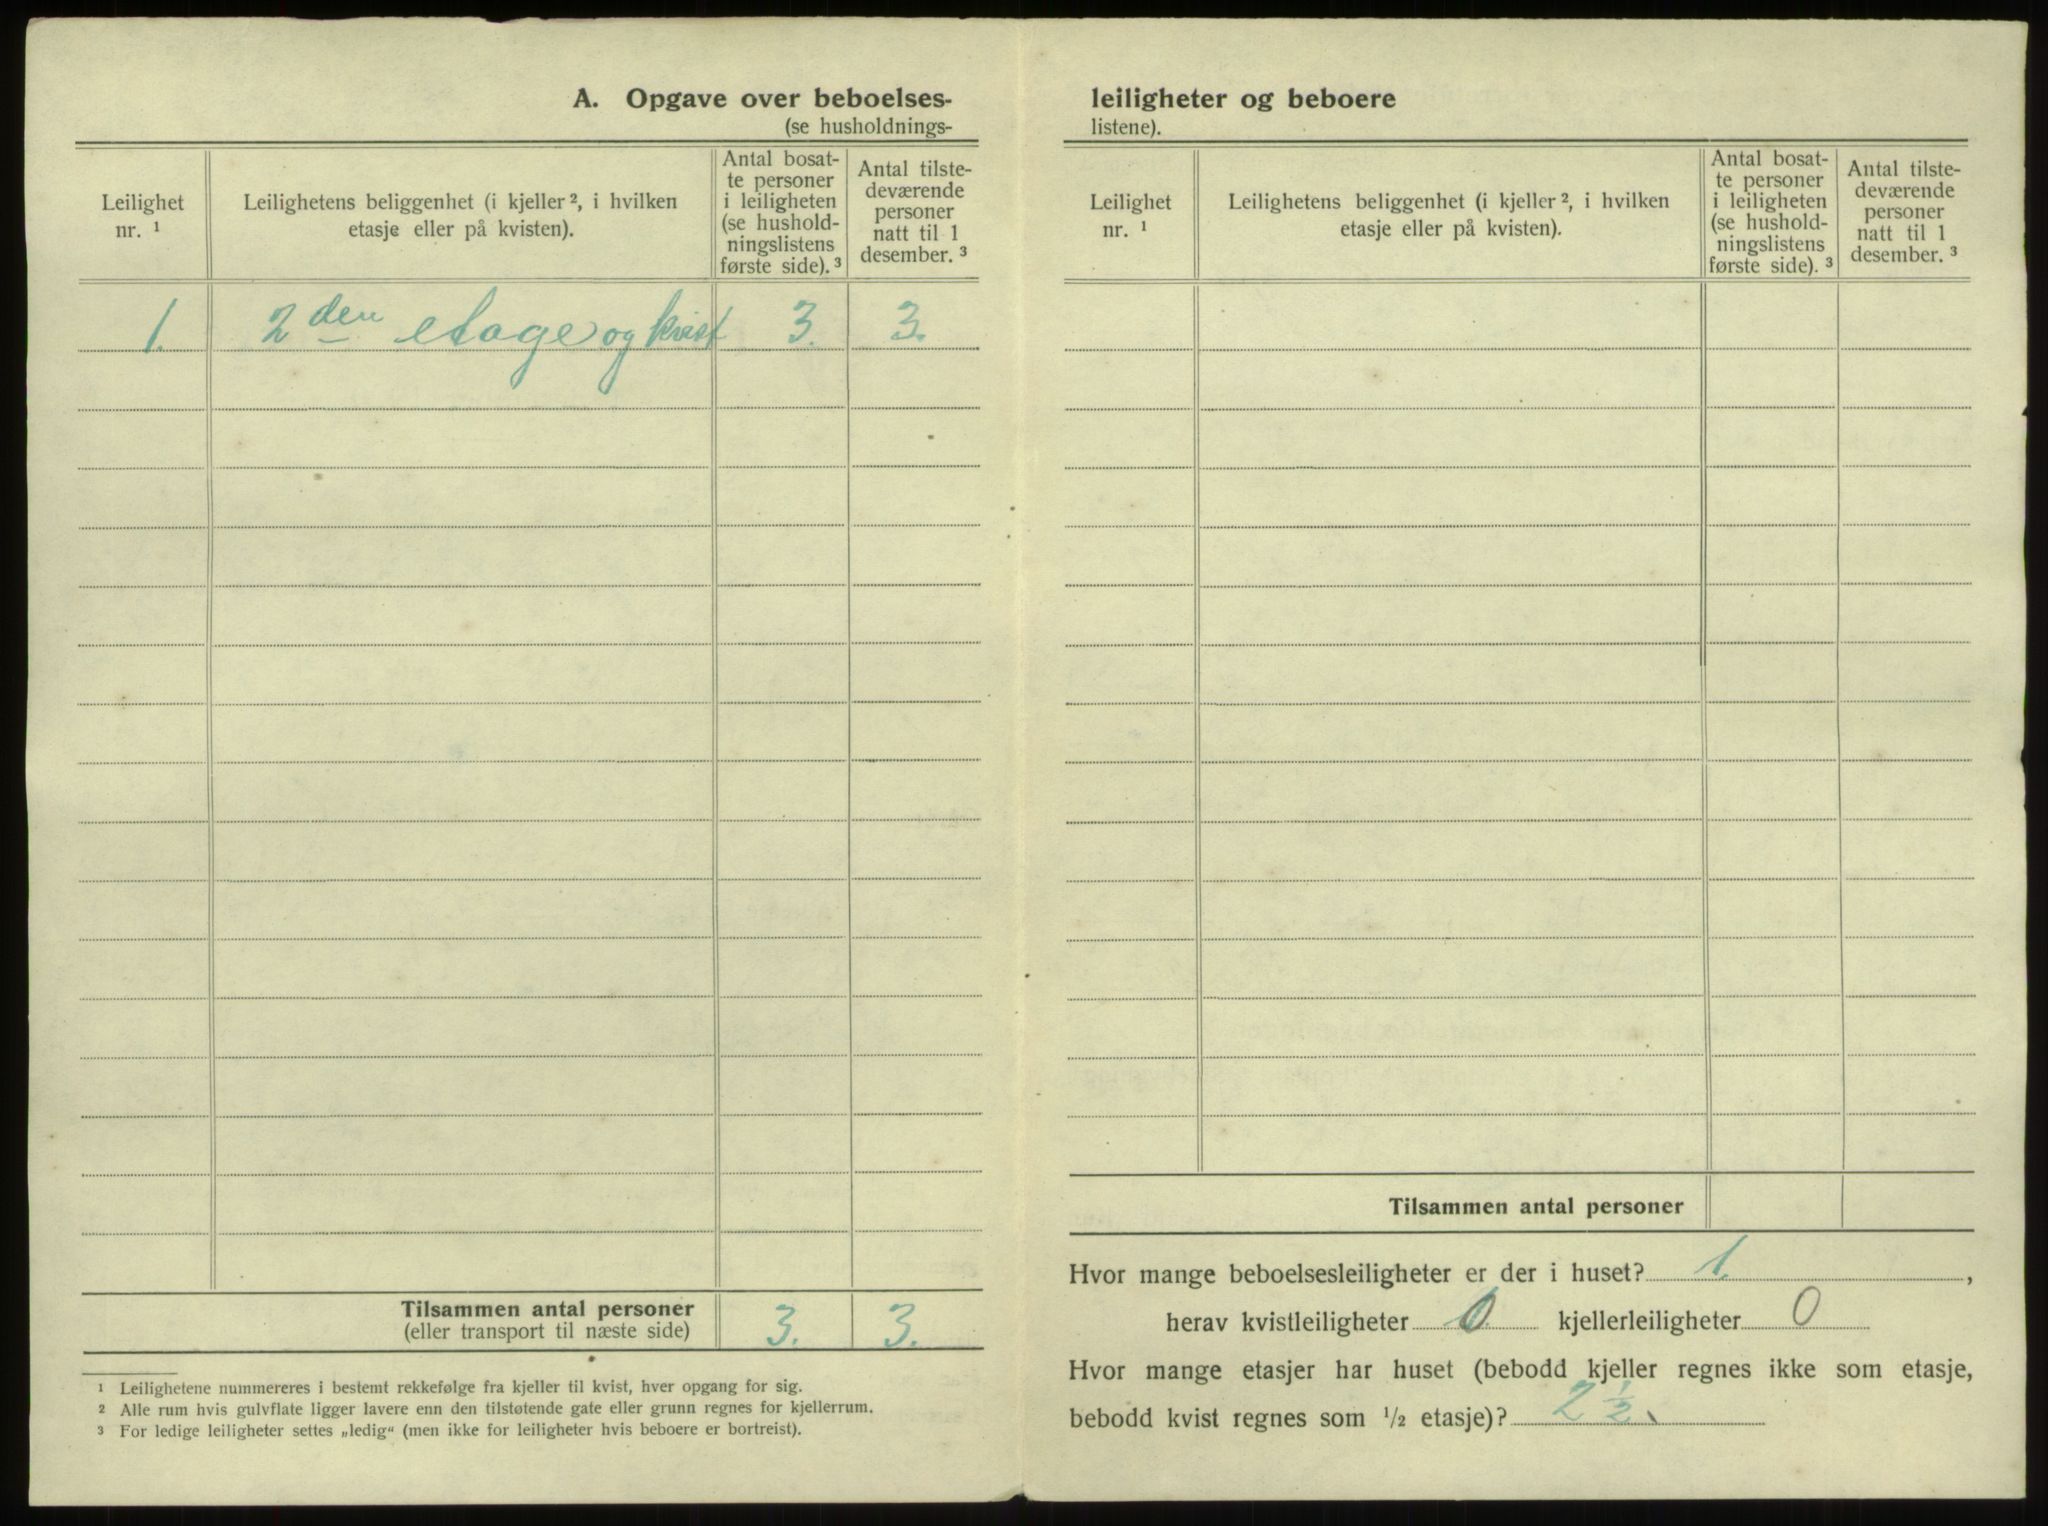 A. Opgave over beboelses-
(se husholdnings-
Leilighet
nr. ¹
Leilighetens beliggenhet (i kjeller ², i hvilken
etasje eller på kvisten).
Antal bosat-
te personer
i leiligheten
(se hushold-
ningslistens
første side). ³
Antal tilste-
deværende
personer
natt til 1
desember. ³
1. 2den etage og kvist 3. 3.
Tilsammen antal personer
(eller transport til næste side)
3. 3.
¹ Leilighetene nummereres i bestemt rekkefølge fra kjeller til kvist, hver opgang for sig.
² Alle rum hvis gulvflate ligger lavere enn den tilstøtende gate eller grunn regnes for kjellerrum.
³ For ledige leiligheter settes „ledig“ (men ikke for leiligheter hvis beboere er bortreist).
leiligheter og beboere
listene).
Leilighet
nr. ¹
Leilighetens beliggenhet (i kjeller ², i hvilken
etasje eller på kvisten).
Antal bosat-
te personer
i leiligheten
(se hushold-
ningslistens
første side). ³
Antal tilste-
deværende
personer
natt til 1
desember. ³
Tilsammen antal personer
Hvor mange beboelsesleiligheter er der i huset? 1. ,
herav kvistleiligheter 0 kjellerleiligheter 0
Hvor mange etasjer har huset (bebodd kjeller regnes ikke som etasje,
bebodd kvist regnes som 1/2 etasje)? 2 1/2